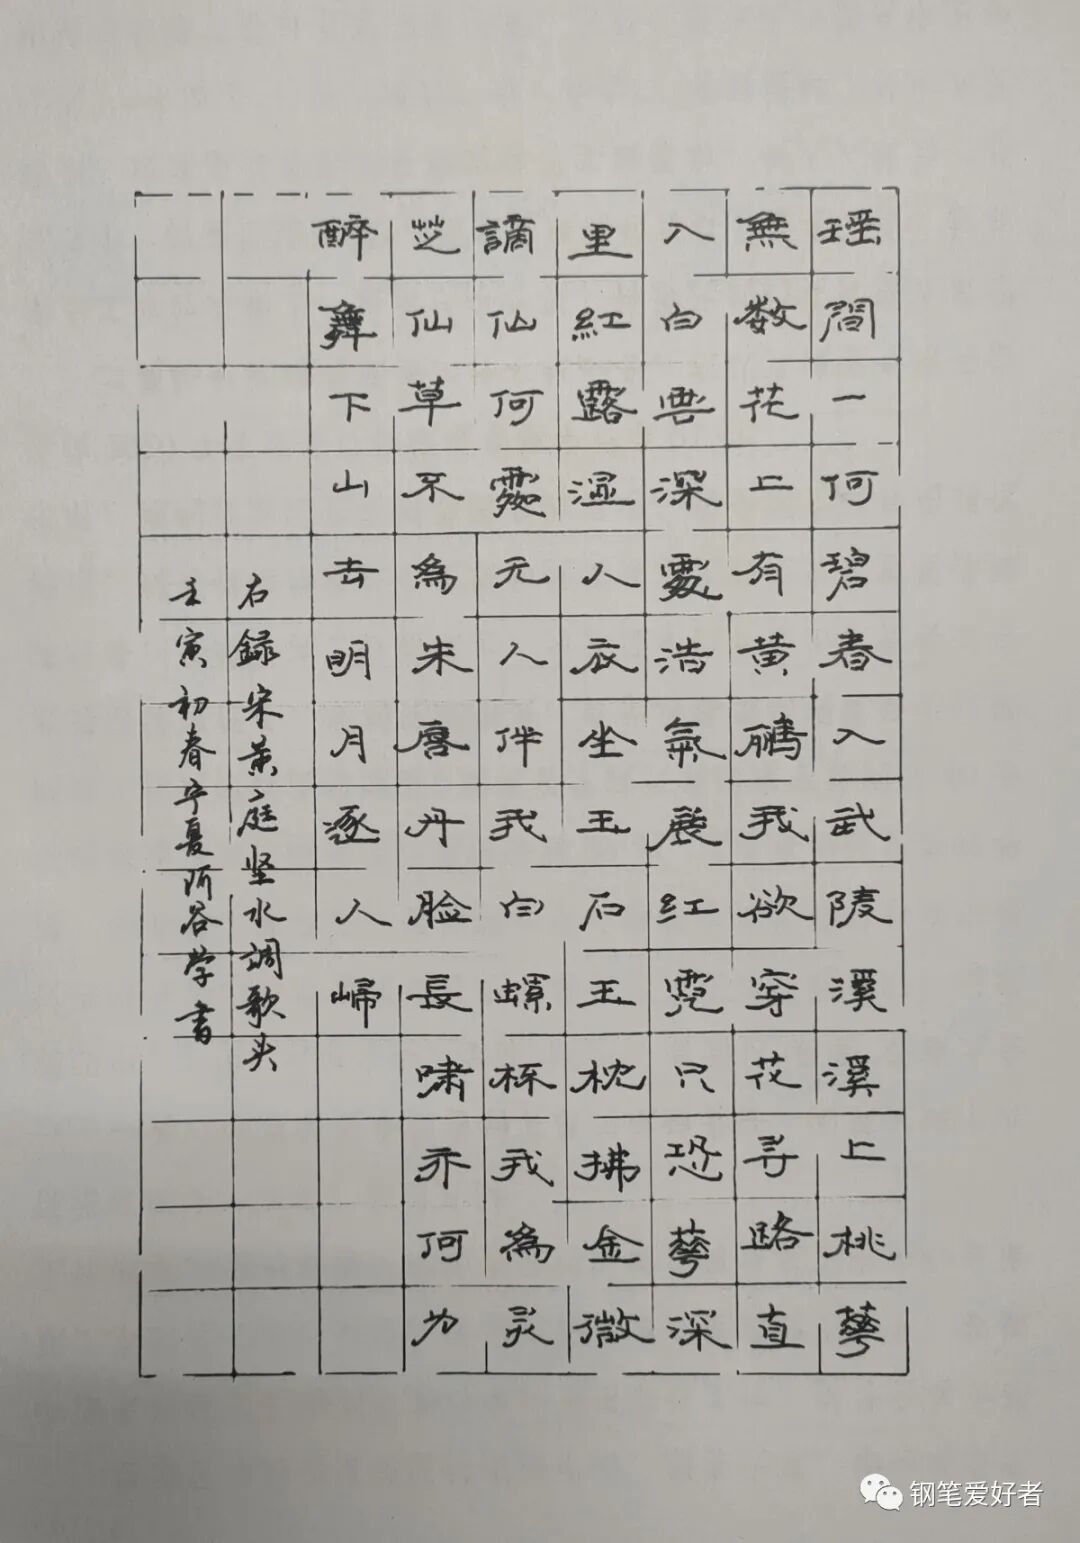 瑶間一何碧春入武陵溪溪上桃華
無数花上有黄鸝我欲穿花寻路直
入白雲深處浩氣展红霓只恐華深
里紅露湿人衣坐玉石玉枕拂金微
謫仙何處无人伴我白螺杯我為灵
芝仙草不為朱唇丹脸長啸亦何为
醉舞下山去明月逐人歸
右録宋黄庭坚水调歌头
壬寅初春宁夏阿谷学書
钢笔爱好者